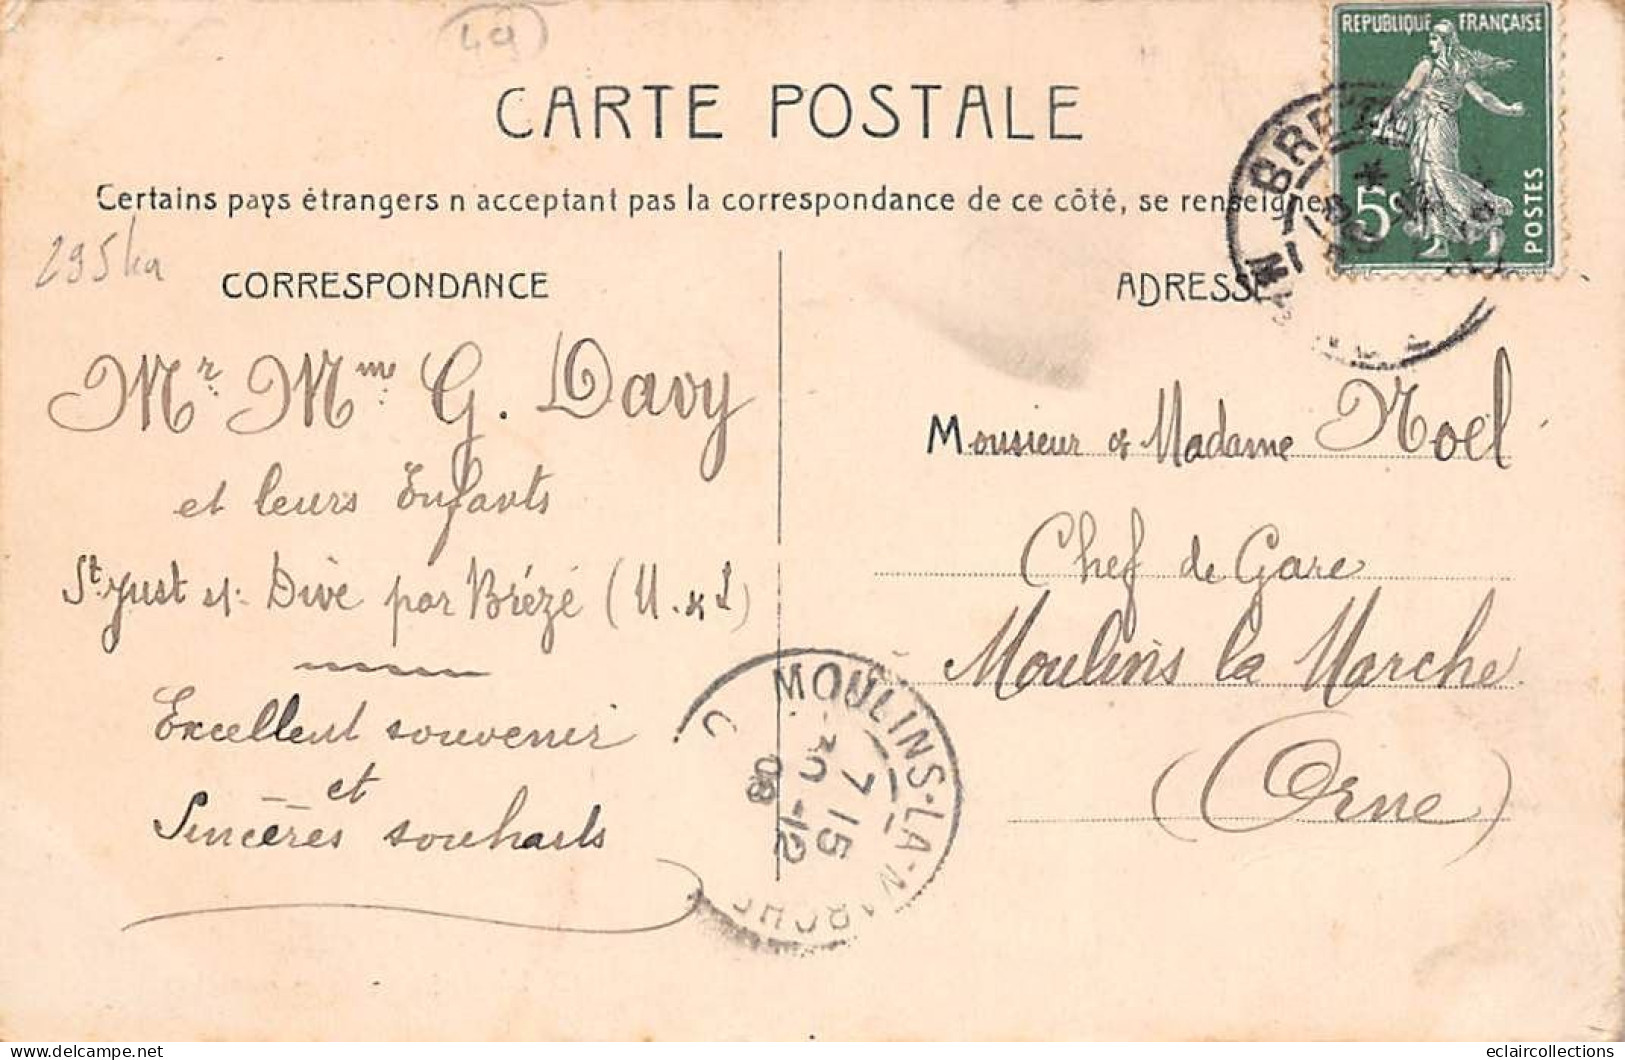 49
REPUBLIQUE FRANÇAISE
CARTE POSTALE
Certains pays étrangers n acceptant pas la correspondance de ce côté, se renseigne
5c POSTES
295
CORRESPONDANCE
ADRESSE
Mr. Mme. G. Davy
et leurs Enfants
St. Just s/- Dive par Brézé (M. & L)
Excellent souvenir
et
Sincères souhaits
Monsieur & Madame Noel
Chef de Gare
Moulins la Marche
(Orne)
MOULINS-LA-MARCHE
7 15
30 -12
08
eclaircollections